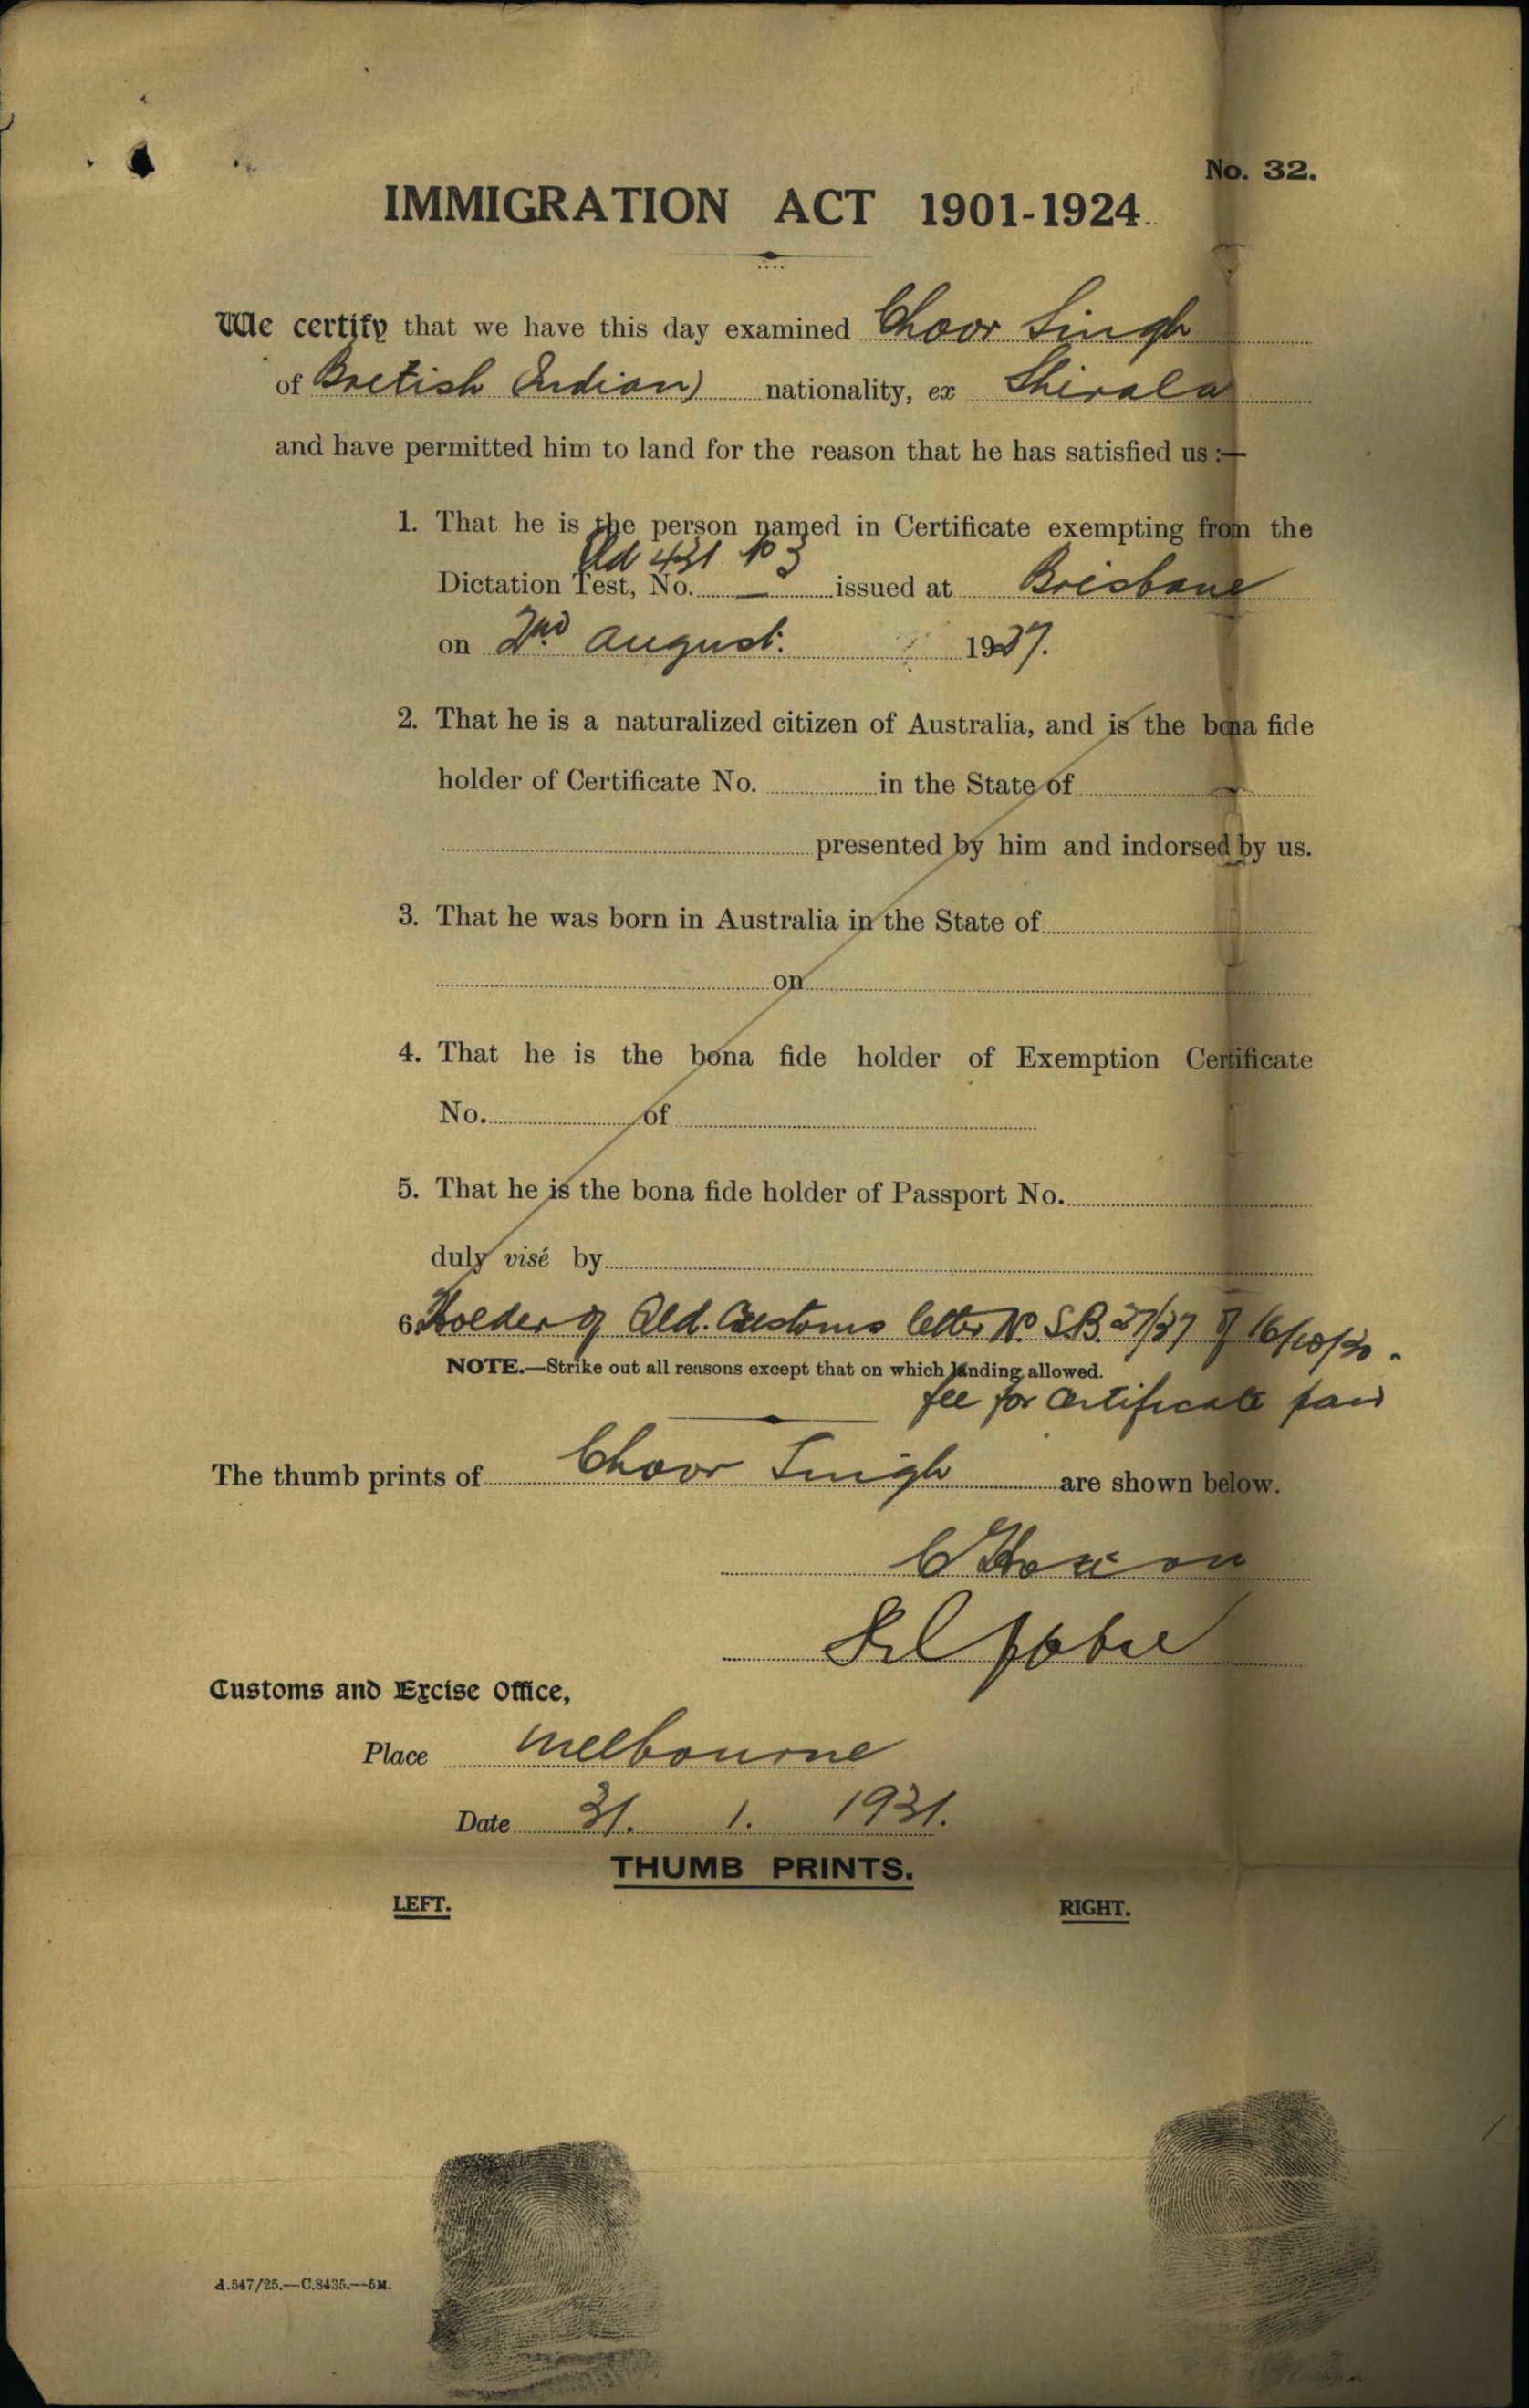 No. 32.
IMMIGRATION ACT 1901-1924.
We certify that we have this day examined Choor Singh
of British Indian nationality, ex Shirala
and have permitted him to land for the reason that he has satisfied us :—
1. That he is the person named in Certificate exempting from the
Qld 431 No 3
Dictation Test, No. — issued at Brisbane
on 2nd August. 1927.
2. That he is a naturalized citizen of Australia, and is the bona fide
holder of Certificate No. in the State of
presented by him and indorsed by us.
3. That he was born in Australia in the State of
on
4. That he is the bona fide holder of Exemption Certificate
No. of
5. That he is the bona fide holder of Passport No.
duly visé by
6. Holder of Qld. Customs letter No S.B. 27/37 of 16/10/30.
NOTE.—Strike out all reasons except that on which landing allowed.
fee for Certificate paid
The thumb prints of Choor Singh are shown below.
Customs and Excise Office,
Place Melbourne
Date 31. 1. 1931.
THUMB PRINTS.
LEFT. RIGHT.
d.547/25.—C.8435.—5M.